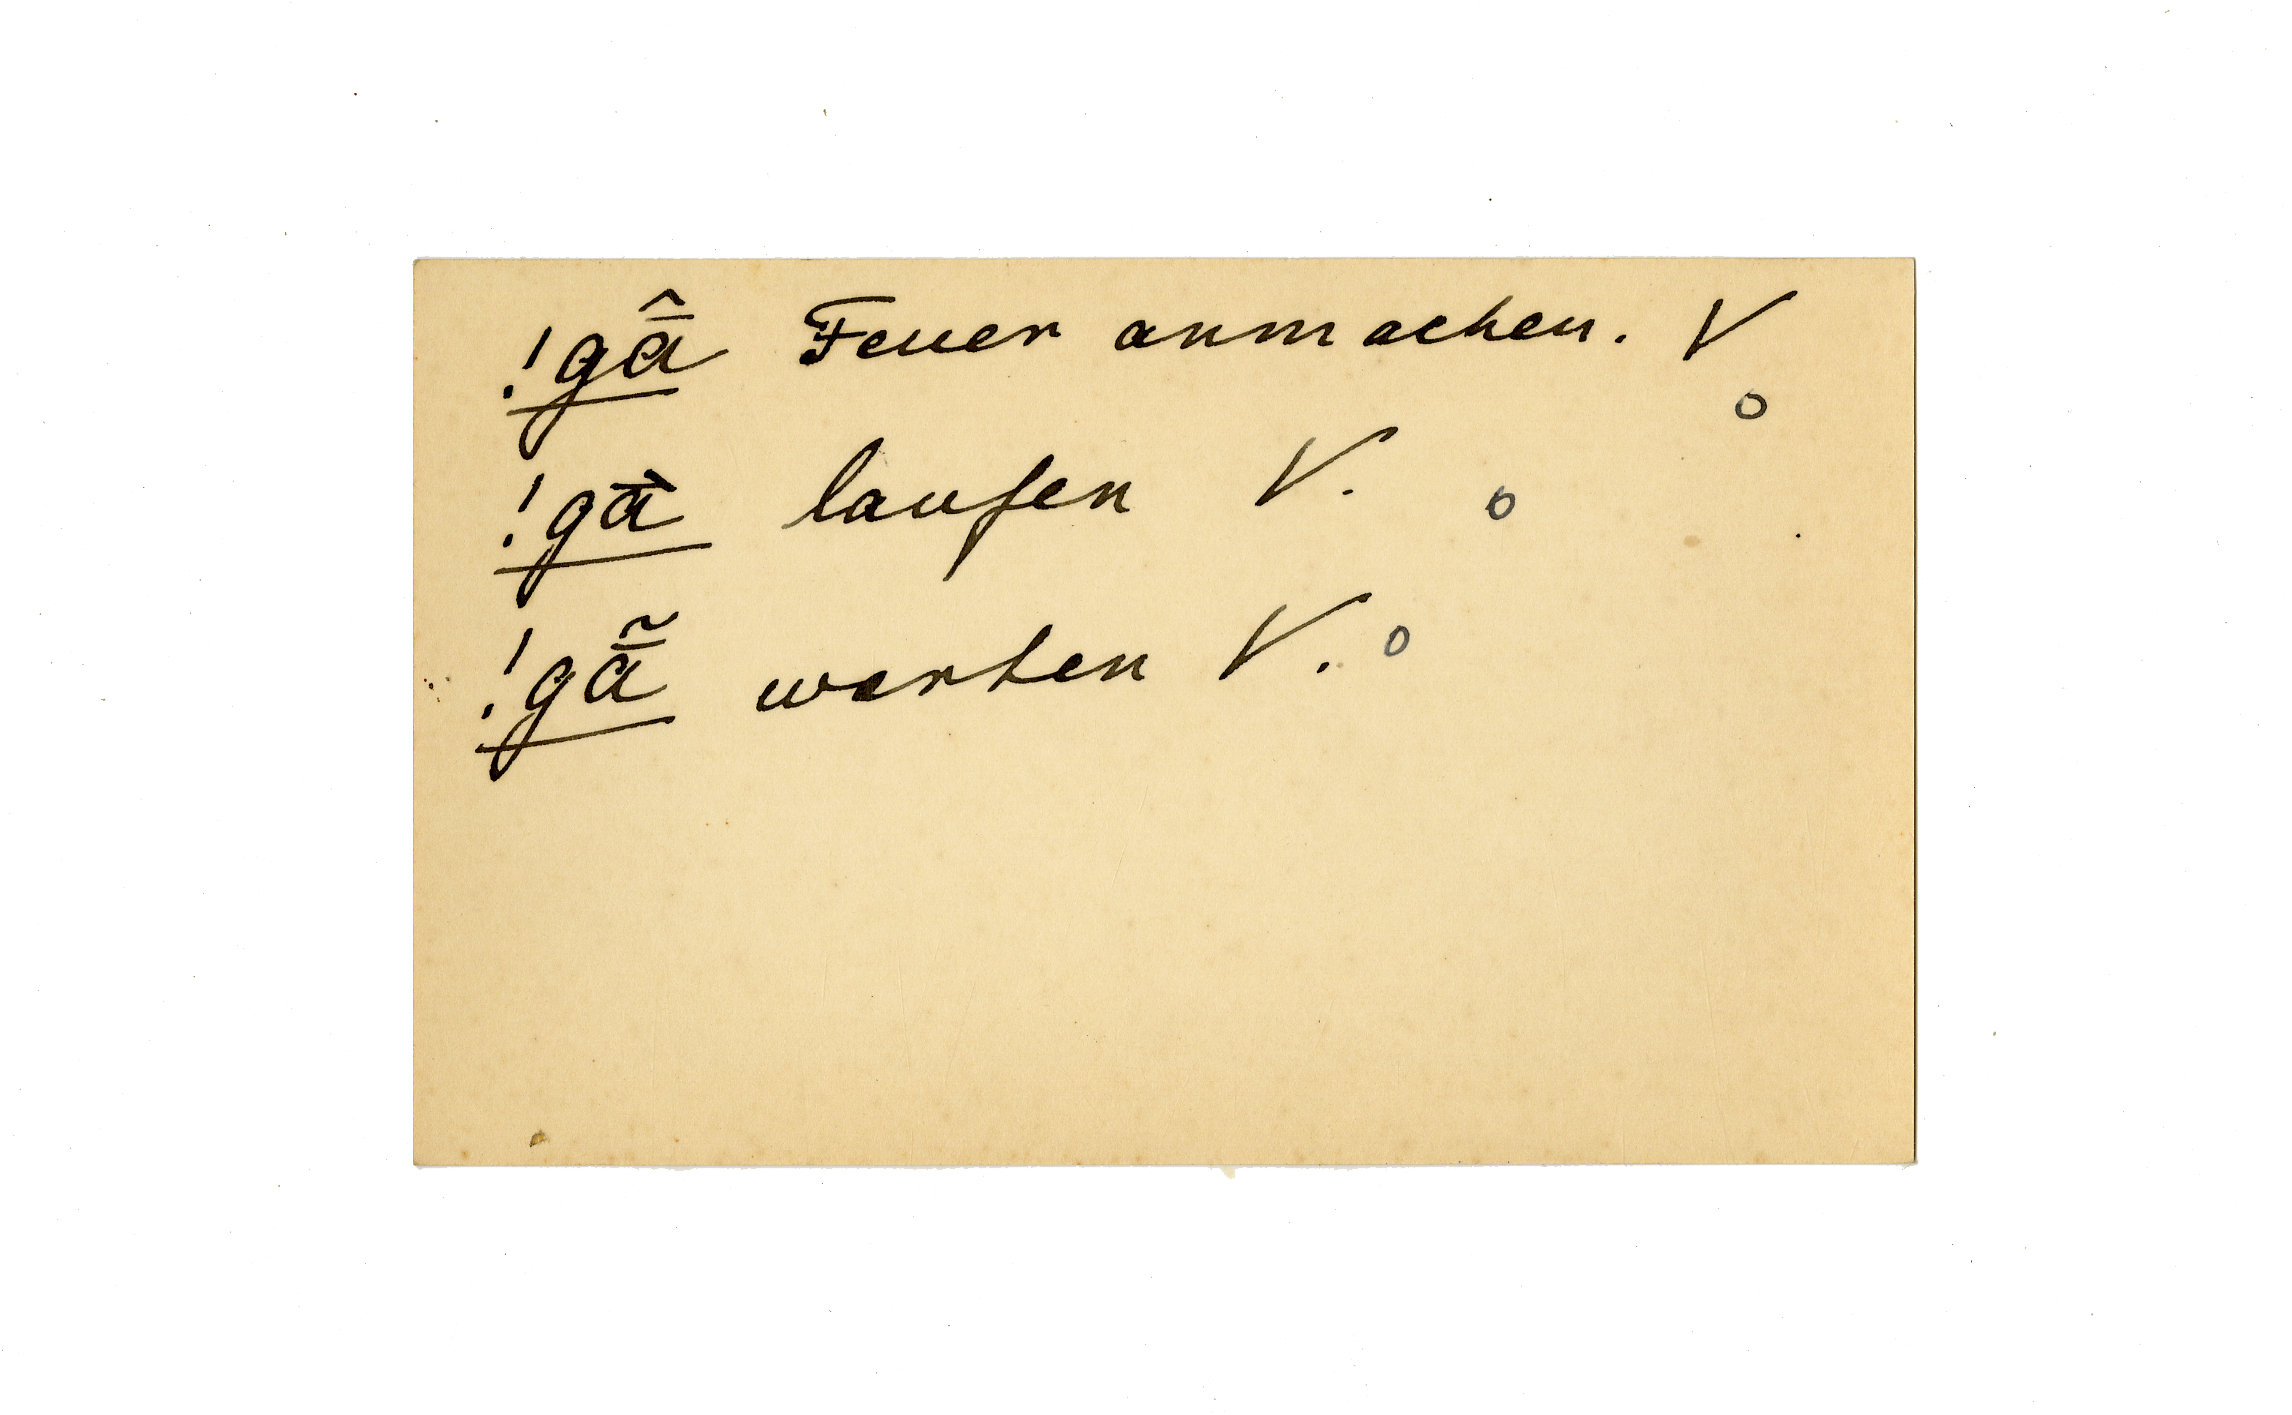 !gā̂ Feuer anmachen. V
!gā̀ laufen V. o
!gā̃ warten V. o